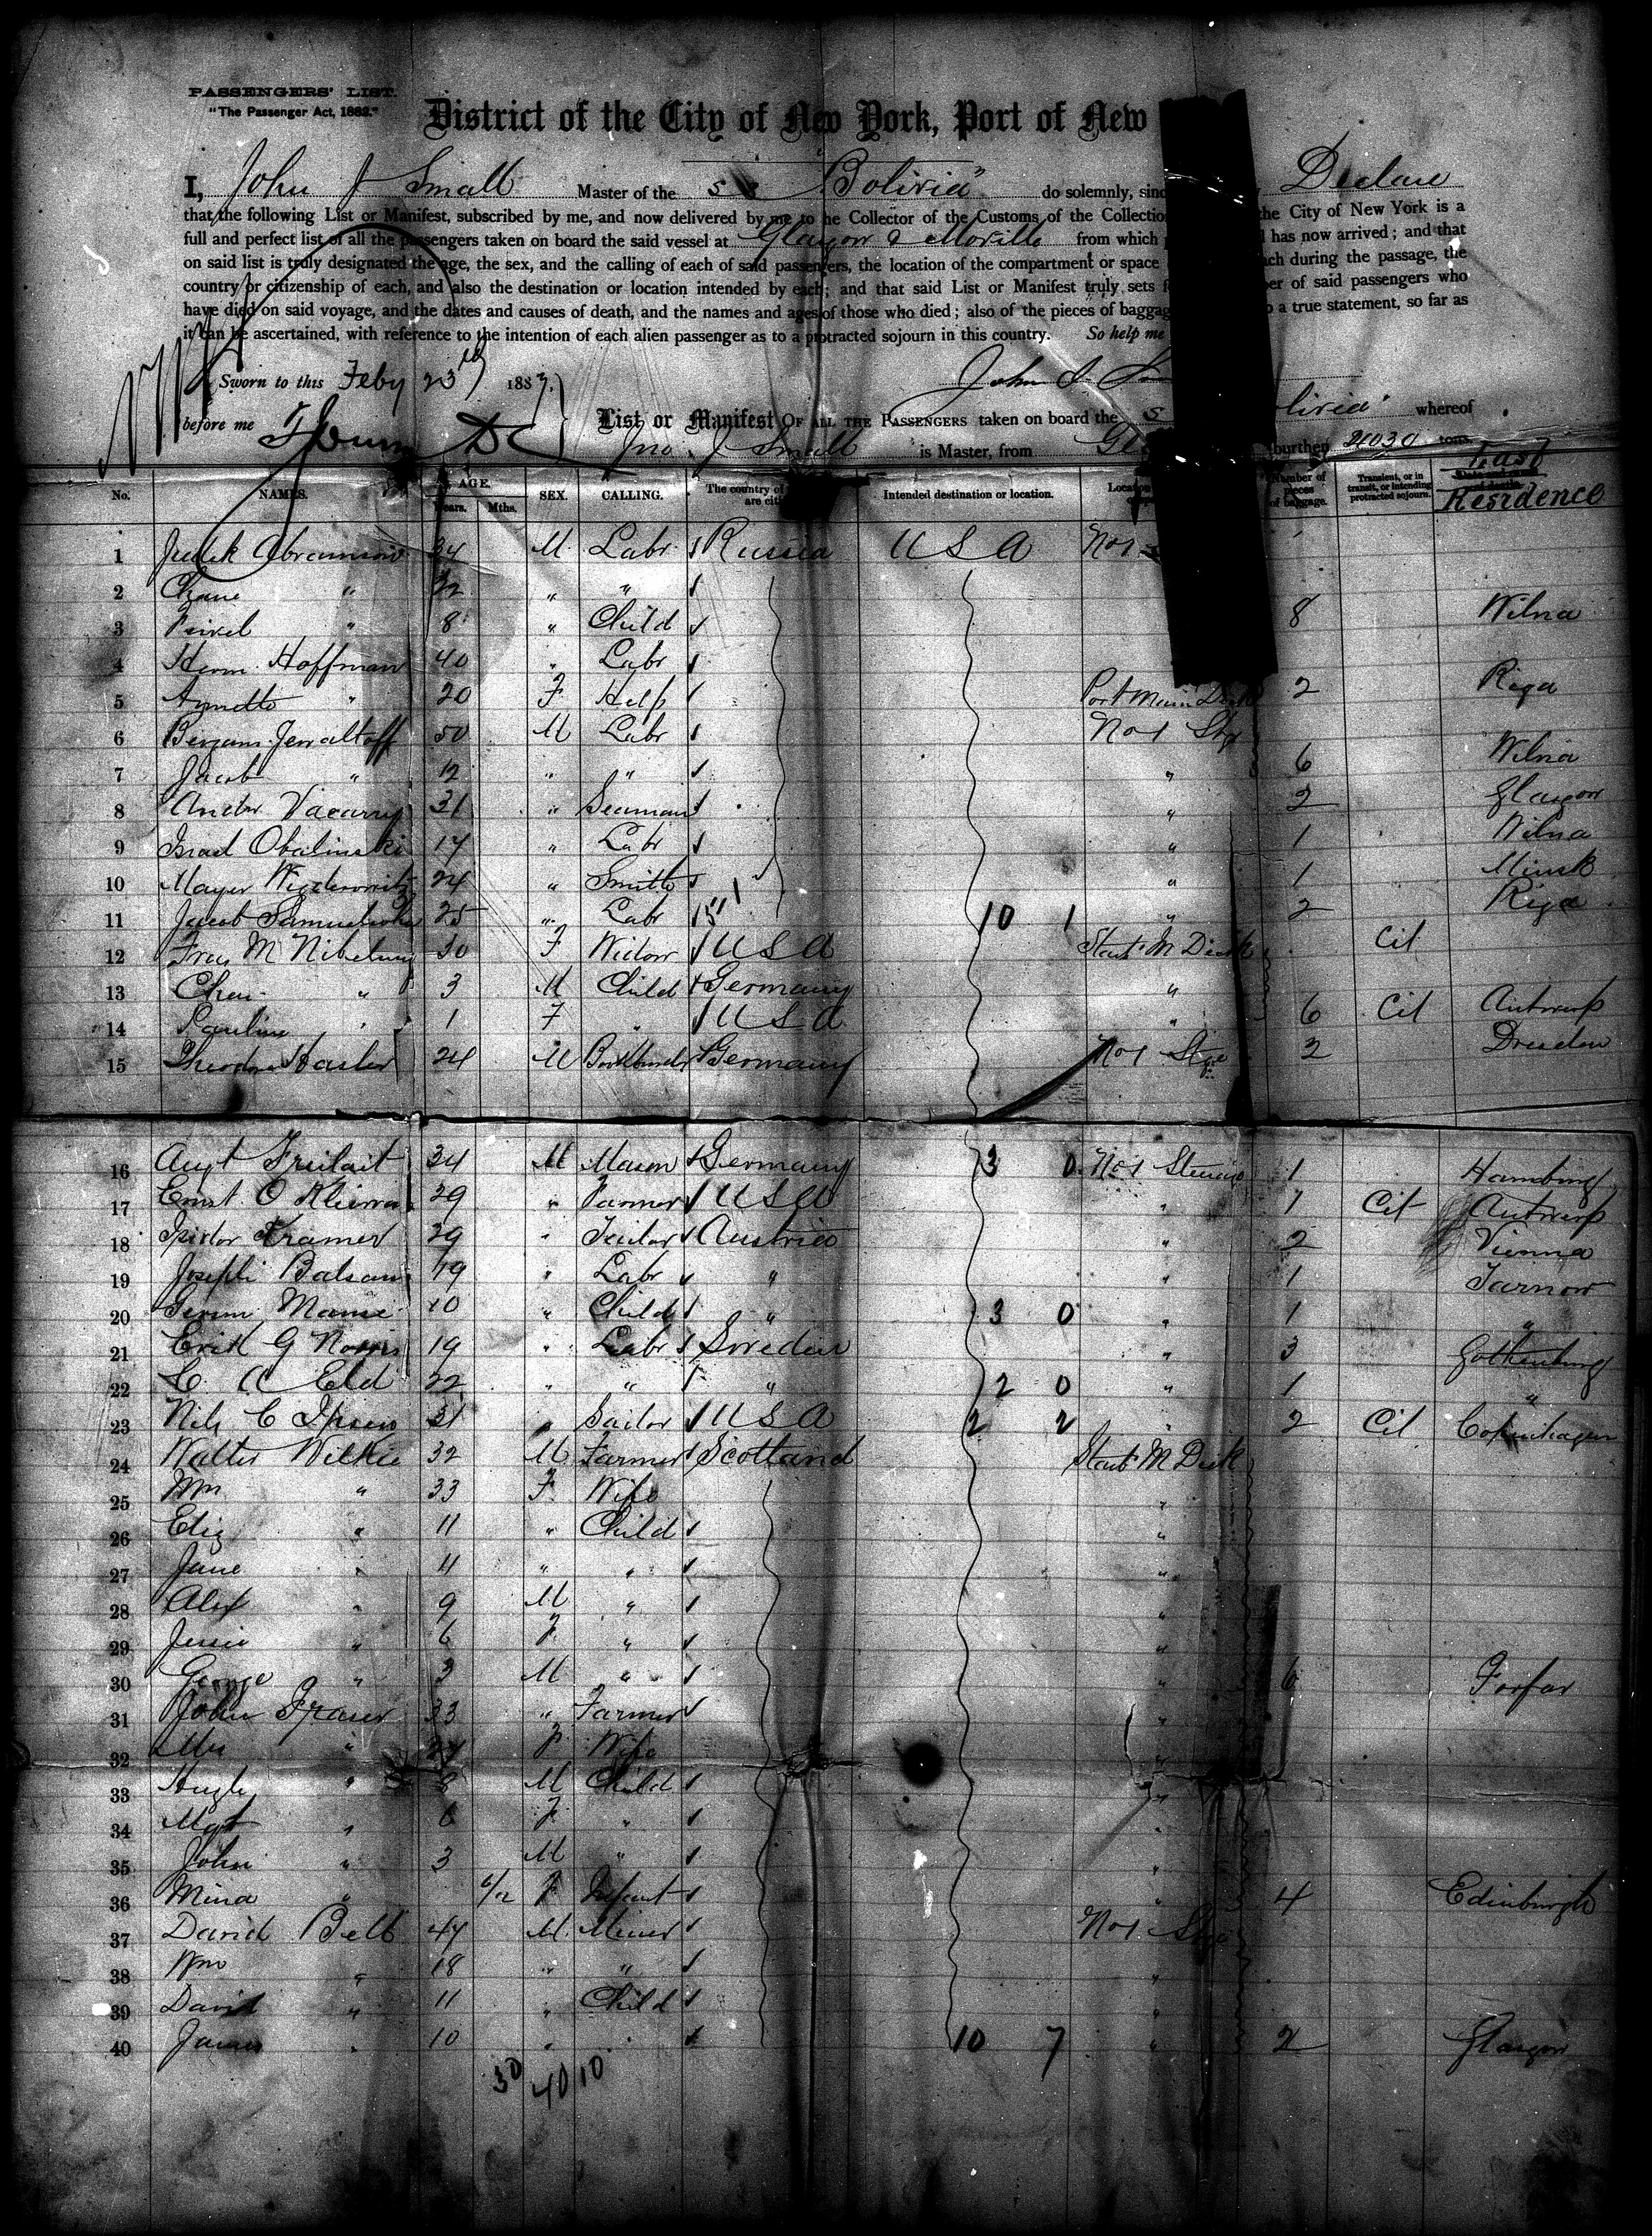 PASSENGERS' LIST.
"The Passenger Act, 1882."
District of the City of New York, Port of New
I, John J Small Master of the S S "Bolivia" do solemnly, sinc Declare
that the following List or Manifest, subscribed by me, and now delivered by me to the Collector of the Customs of the Collectio the City of New York is a
full and perfect list of all the passengers taken on board the said vessel at Glasgow & Moville from which has now arrived; and that
on said list is truly designated the age, the sex, and the calling of each of said passengers, the location of the compartment or space ach during the passage, the
country or citizenship of each, and also the destination or location intended by each; and that said List or Manifest truly sets f er of said passengers who
have died on said voyage, and the dates and causes of death, and the names and ages of those who died; also of the pieces of baggag o a true statement, so far as
it can be ascertained, with reference to the intention of each alien passenger as to a protracted sojourn in this country. So help me
Sworn to this Feby 23rd 1887. John J. S
before me
List or Manifest OF ALL THE PASSENGERS taken on board the S olivia" whereof
Jno. J Small is Master, from Gla burthen tons
No. NAMES. AGE. Years. Mths. SEX. CALLING. The country of are cit Intended destination or location. Locatio Number of pieces of baggage. Transient, or in transit, or intending protracted sojourn. Last Residence
1 Abramson 34 M Labr Russia U S A No 1
2 Chane " 32 " "
3 Feivel " 8 " Child 8 Wilna
4 Herm. Hoffman 40 " Labr
5 Annette " 20 F Help Port Main Deck 2 Riga
6 50 M Labr No 1 Stge
7 Jacob " 12 " " " 6 Wilna
8 31 " Seaman " 2 Glasgow
9 Israel Obalinski 17 " Labr " 1 Wilna
10 Mayer 24 " Smith " 1 Minsk
11 Jacob 25 " Labr 10 1 " 2 Riga
12 30 F Widow U S A Starb M Deck Cit
13 " 3 M Child Germany "
14 Pauline " 1 F " U S A " 6 Cit Antwerp
15 24 M Bookbinder Germany No 1 Stge 2 Dresden
16 Augt 34 M Mason Germany 3 0 No 1 Steerage 1 Hamburg
17 Ernst O 29 " Farmer U S A " 1 Cit Antwerp
18 Isidor Kramer 29 " Tailor Austria " 2 Vienna
19 Joseph 19 " Labr " " 1 Tarnow
20 10 " Child " 3 0 " 1 "
21 Erik G Norris 19 " Labr Sweden " 3 Gothenburg
22 C. A Eld 22 " " " 2 0 " 1 "
23 Nils C 31 " Sailor U S A 2 2 " 2 Cit Copenhagen
24 Walter Wilkie 32 M Farmer Scotland Starb M Deck
25 " 33 F Wife "
26 Eliz " 11 " Child "
27 Jane " 11 " " "
28 Alex " 9 M " "
29 Jessie " 6 F " "
30 George " 3 M " " 6 Forfar
31 John Fraser 33 " Farmer "
32 Mrs " 27 F Wife "
33 Hugh " 8 M Child "
34 Mgt " 6 F " "
35 John " 3 M " "
36 Mina " 6/12 F Infant " 4 Edinburgh
37 David Bell 44 M Miner No 1 Stge
38 Wm " 18 " " "
39 David " 11 " Child "
40 James " 10 " " 10 7 " 2 Glasgow
30 40 10